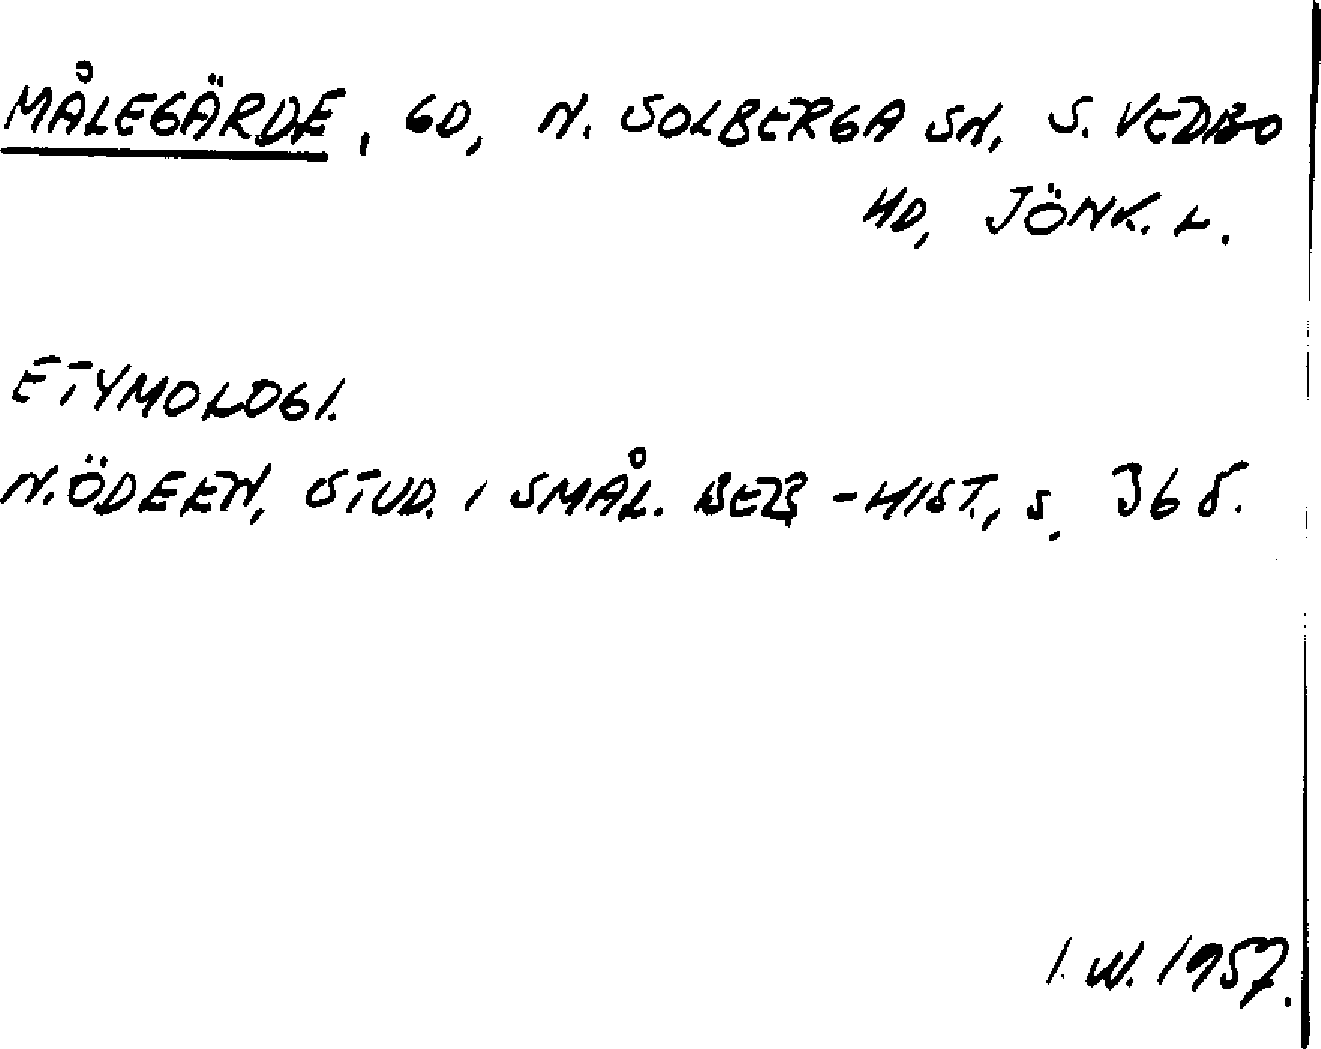 MÅLEGÄRDE, GD, N. SOLBERGA SN, S. VEDBO
HD, JÖNK. L.
ETYMOLOGI.
N. ÖDEEN, STUD. I SMÅL. BEB-HIST., S. 365.
I. W. 1957.